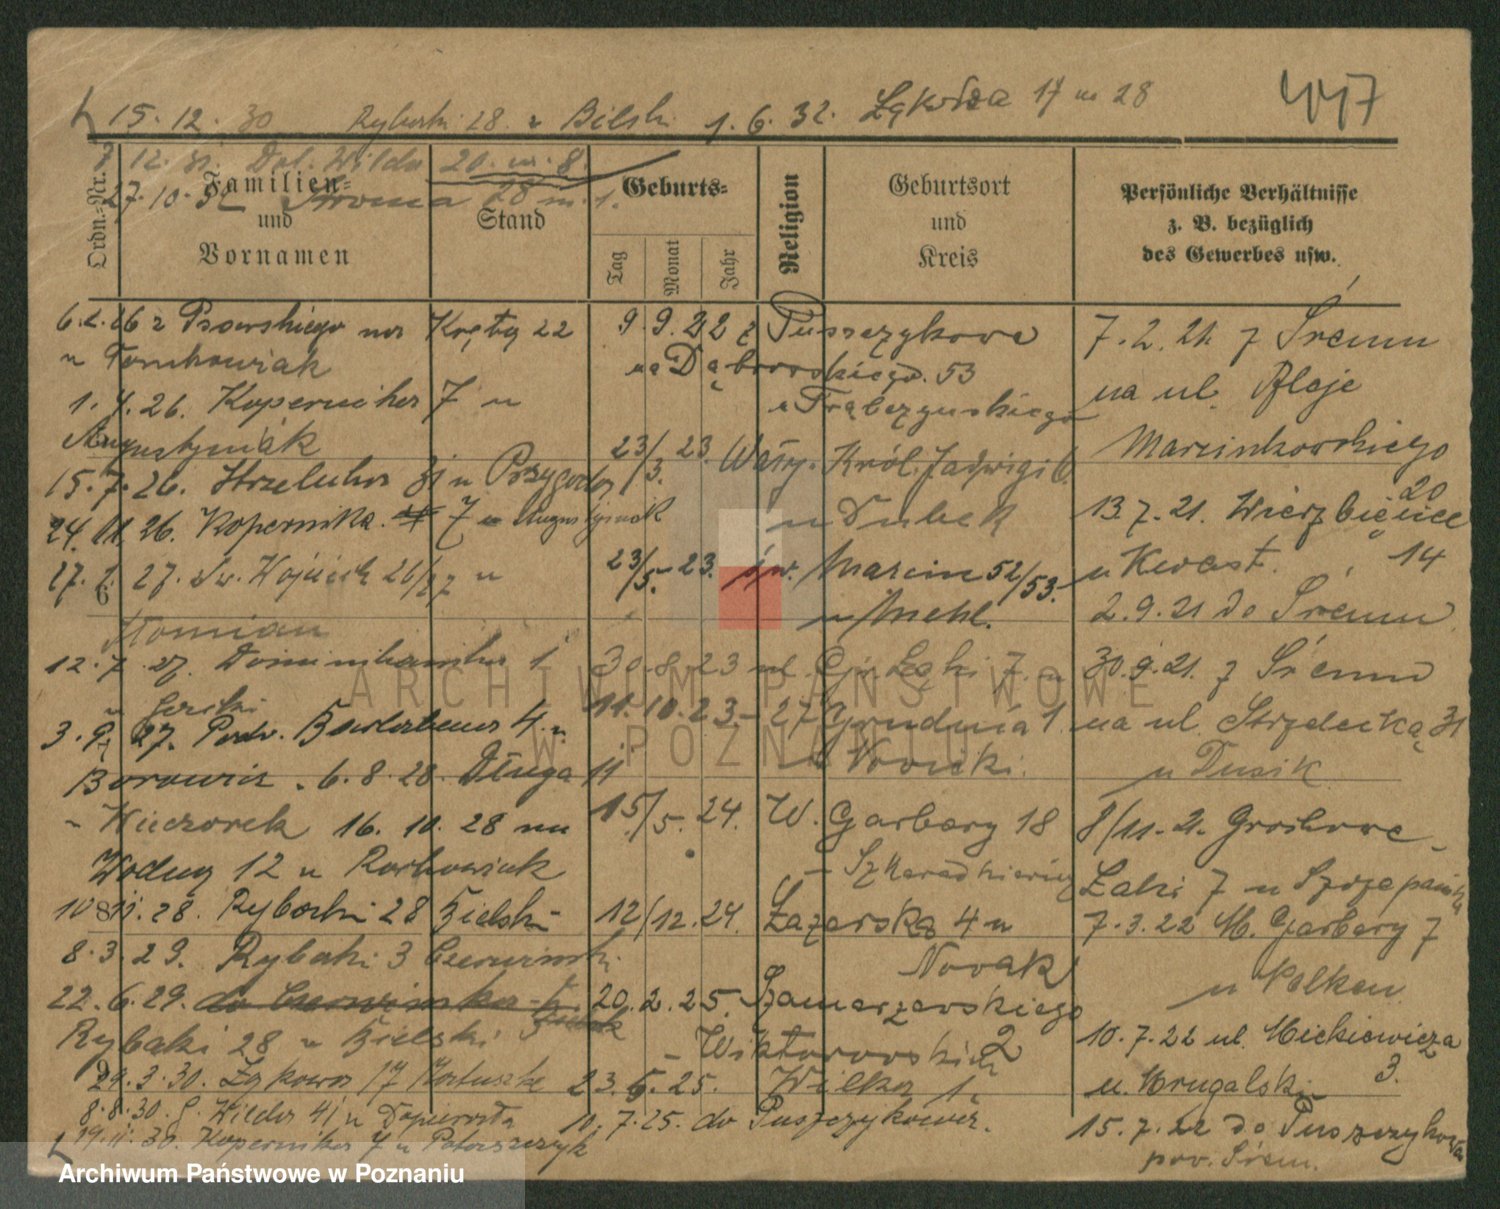 447
15. 12. 30 Rybaki 28 u Bielski 1. 6. 32. Łąkowa 17 m 28
12. 31. Dol. Wilda 20. m. 8.
27. 10. 32 28 m. 1.
Ordn.-Nr.
Familien-
und
Vornamen
Stand
Geburts-
Tag
Monat
Jahr
Religion
Geburtsort
und
Kreis
Persönliche Verhältnisse
z. B. bezüglich
des Gewerbes usw.
6. 2. 26 z na Krętą 22
u Tomkowiak
1. 4. 26. Kopernika 7 u
Augustyniak
15. 7. 26. Strzelecka 31 u Przygoda
24. 11. 26. Kopernika 7 u Augustyniak
27. 1. 27. Św. Wojciech 26/27 u
6
Stomian
12. 7. 27. Dominikańska 1
u
3. 9. 27. 4 u
7
Borowicz. 6. 8. 28. Długa 11
- Wieczorek 16. 10. 28 na
Wodną 12 u Rachowiak
10 8 11. 28. Rybaki 28 Bielski
8. 3. 29. Rybaki 3 Czerwinski
22. 6. 29. do
Rybaki 28 u Bielski
9
24. 3. 30. Łąkowa 17
8. 8. 30. G. Wilda 41 u
19. 11. 30. Kopernika 7 u
9. 9. 22 z Puszczykowa
na Dąbrowskiego. 53
u
23/3. 23. Wały. Król. Jadwigi 6
u Dubek
23/5. - 23. św. Marcin 52/53.
u Mehl.
30. 8. 23 ul. Łąki 7. u
11. 10. 23. - 27 Grudnia 1.
u Nowicki.
15/5. 24. W. Garbary 18
- Szkaradkiewicz
12/12. 24. Łazarska 4 u
Nowak
20. 2. 25. Szamarzewskiego
- Wiktorowski 2
23. 5. 25. Wilka 1.
10. 7. 25. do Puszczykowa.
7. 2. 21. z Śremu
na ul. Aleje
Marcinkowskiego
20
13. 7. 21. Wierzbięcice
u Kwast. 14
2. 9. 21 do Śremu
30. 9. 21. z Śremu
na ul. Strzelecką 31
u Dusik
8/11. 21. Grochowe
Łąki 7 u Szczepański
7. 3. 22 W. Garbary 7
u
10. 7. 22 ul. Mickiewicza
3.
u. Krugalski
15. 7. 22 do Puszczykowa
pow. Śrem.
ARCHIWUM PAŃSTWOWE
W POZNANIU
Archiwum Państwowe w Poznaniu